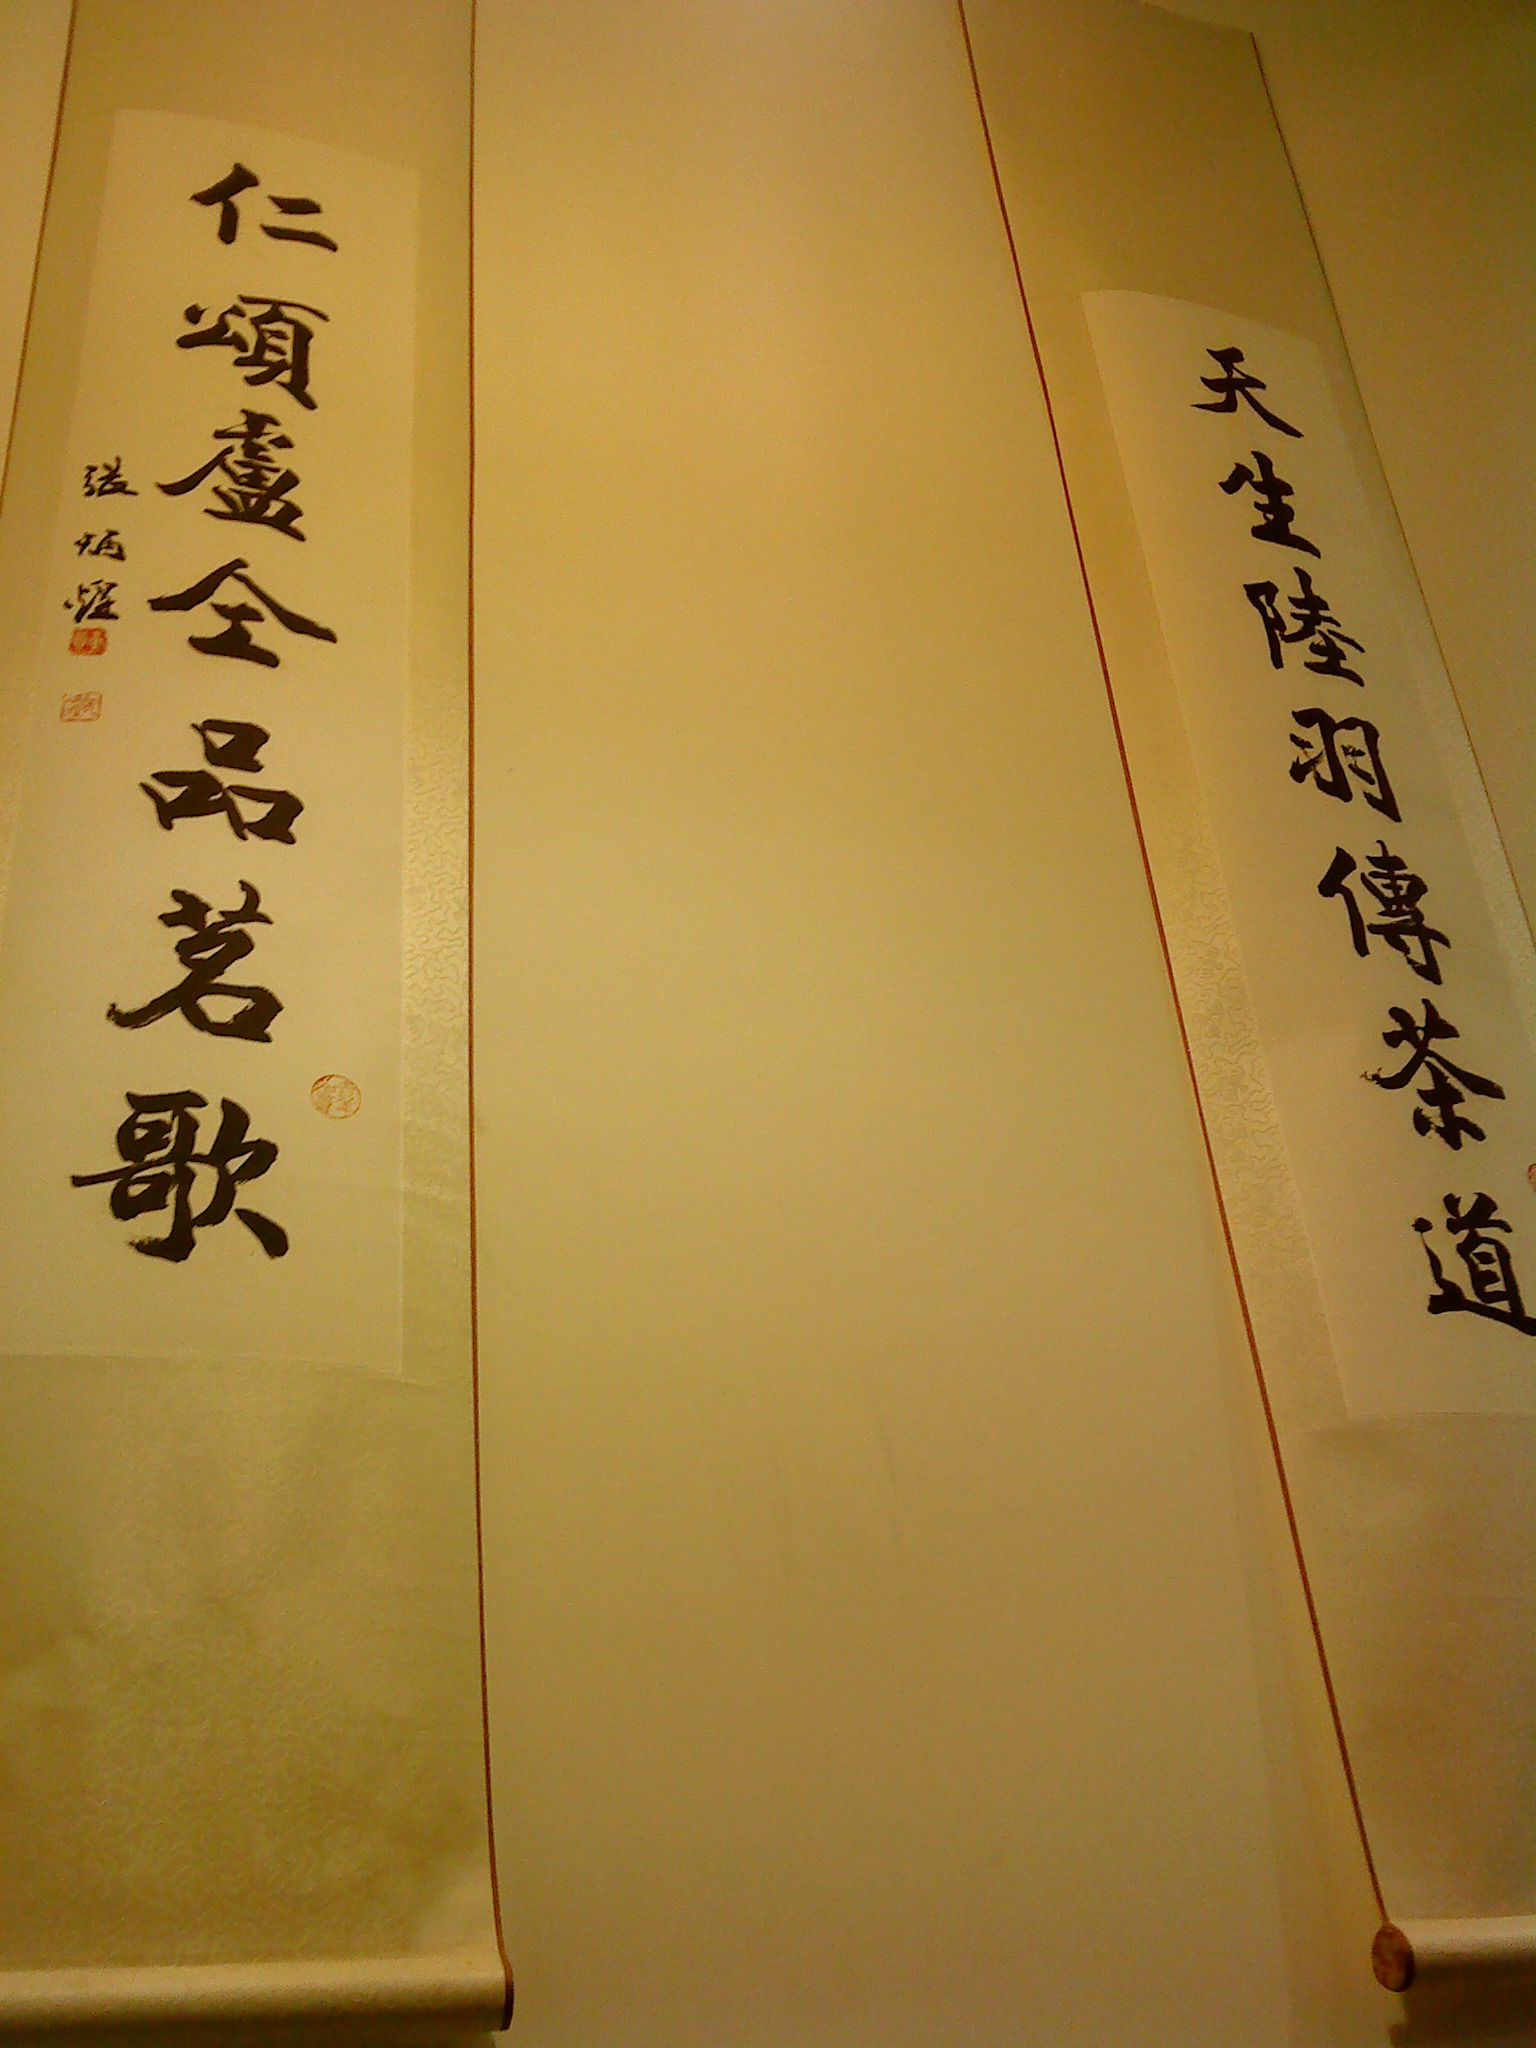 天生陸羽傳茶道
仁頌盧仝品茗歌
張炳煌